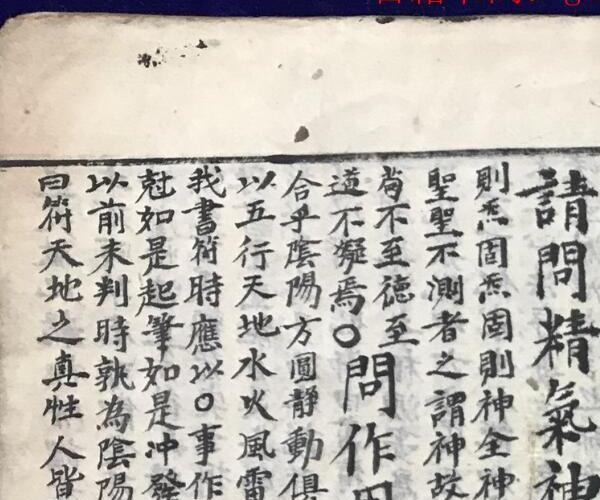 請問精氣神
則炁固炁固則神全神
聖聖不測者之謂神故
苟不至德至
道不凝焉○問作用
合乎陰陽方圓靜動俱
以五行天地水火風雷
我書符時應以○事作
尅如是起筆如是冲發
以前未判時孰為陰陽
曰符天地之真性人皆